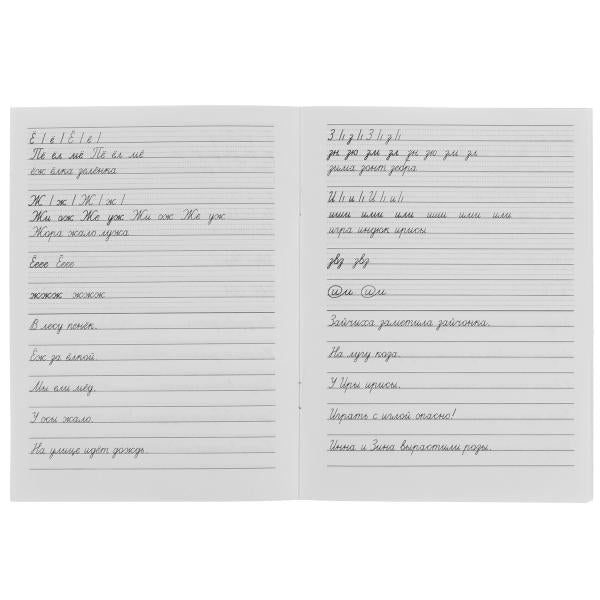 Ё / ё / Ё / ё /
Пё ёл мё Пё ёл мё
ёж ёлка зелёнка
Ж / ж / Ж / ж /
Жи ож Же уж Жи ож Же уж
Жора жало лужа
Ёеее Ёеее
жжжж жжжж
В лесу пенёк.
Ёж за ёлкой.
Мы ели мёд.
У осы жало.
На улице идёт дождь.
З / з / З / з /
зн зю зм зл зн зю зм зл
зима зонт зебра
И / и / И / и /
иши ими или иши ими или
игра индюк ирисы
звз звз
ии ии
Зайчиха заметила зайчонка.
На лугу коза.
У Иры ирисы.
Играть с иглой опасно!
Инна и Зина вырастили розы.